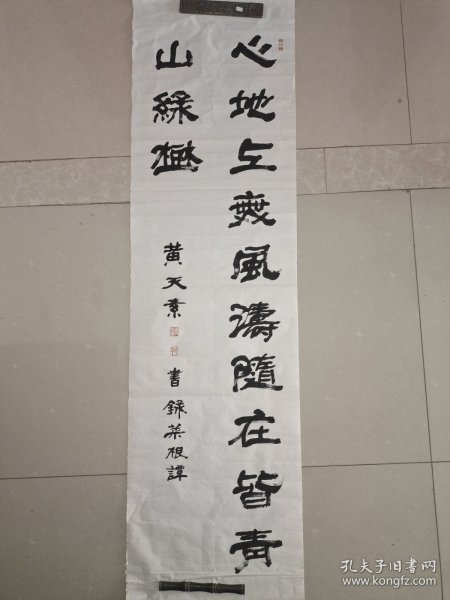 心地上無風濤隨在皆青
山綠樹
黃天素 書錄菜根譚
孔夫子旧书网
www.kongfz.com